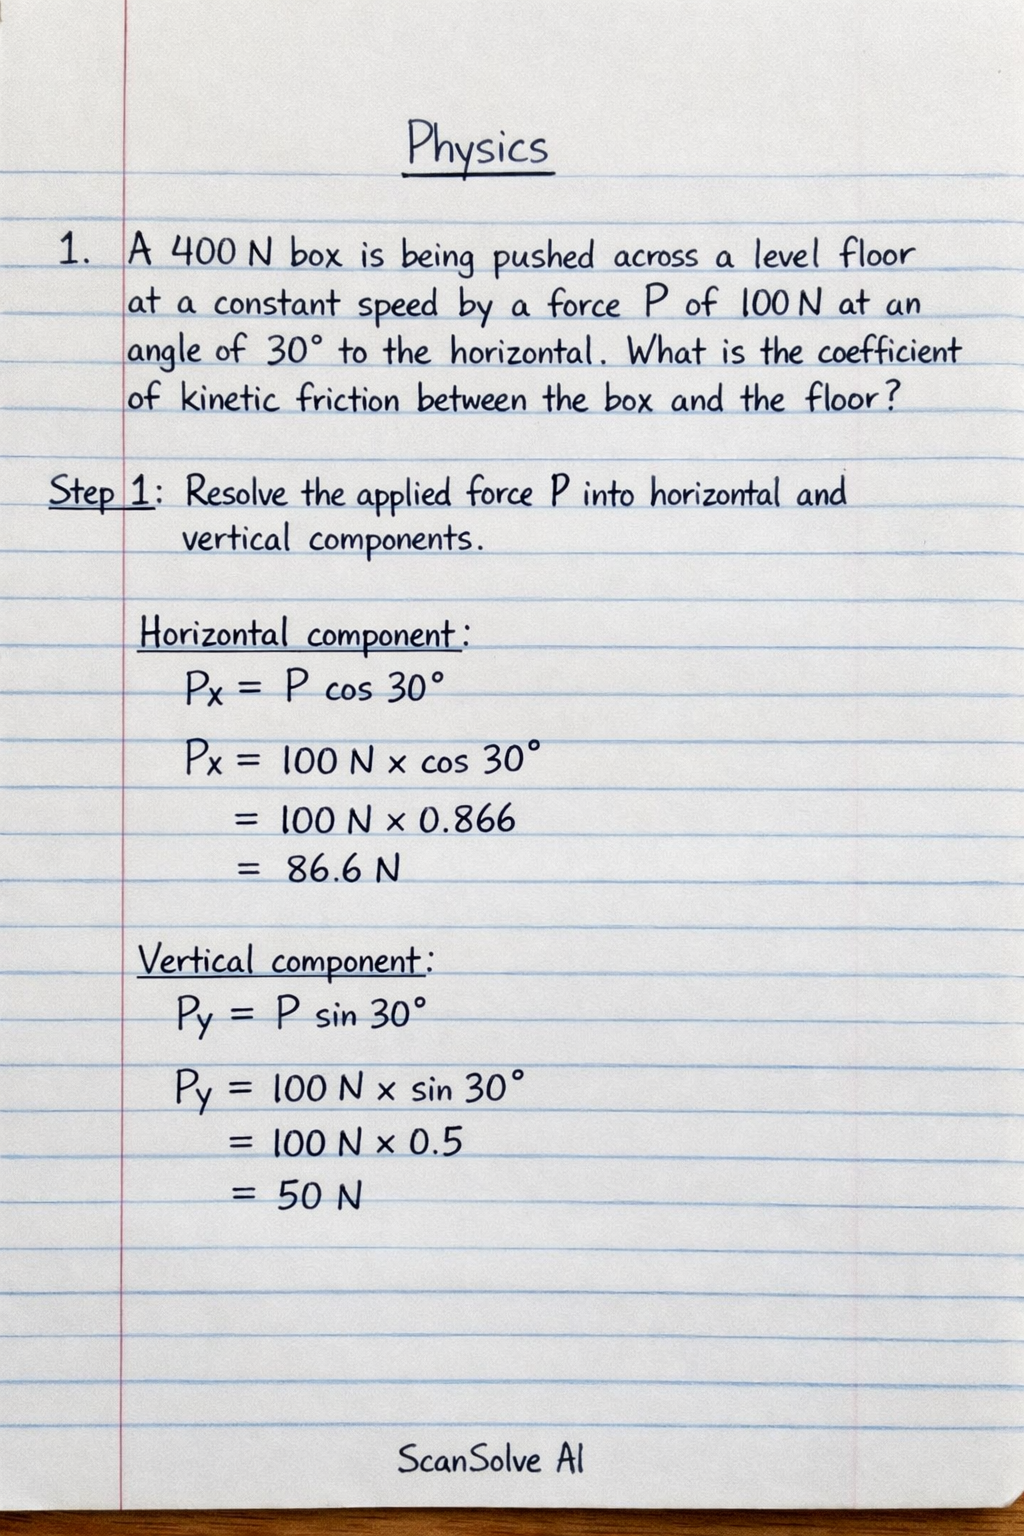 Physics
1. A 400 N box is being pushed across a level floor
at a constant speed by a force P of 100 N at an
angle of 30° to the horizontal. What is the coefficient
of kinetic friction between the box and the floor?
Step 1: Resolve the applied force P into horizontal and
vertical components.
Horizontal component:
Px = P cos 30°
Px = 100 N × cos 30°
= 100 N × 0.866
= 86.6 N
Vertical component:
Py = P sin 30°
Py = 100 N × sin 30°
= 100 N × 0.5
= 50 N
ScanSolve AI